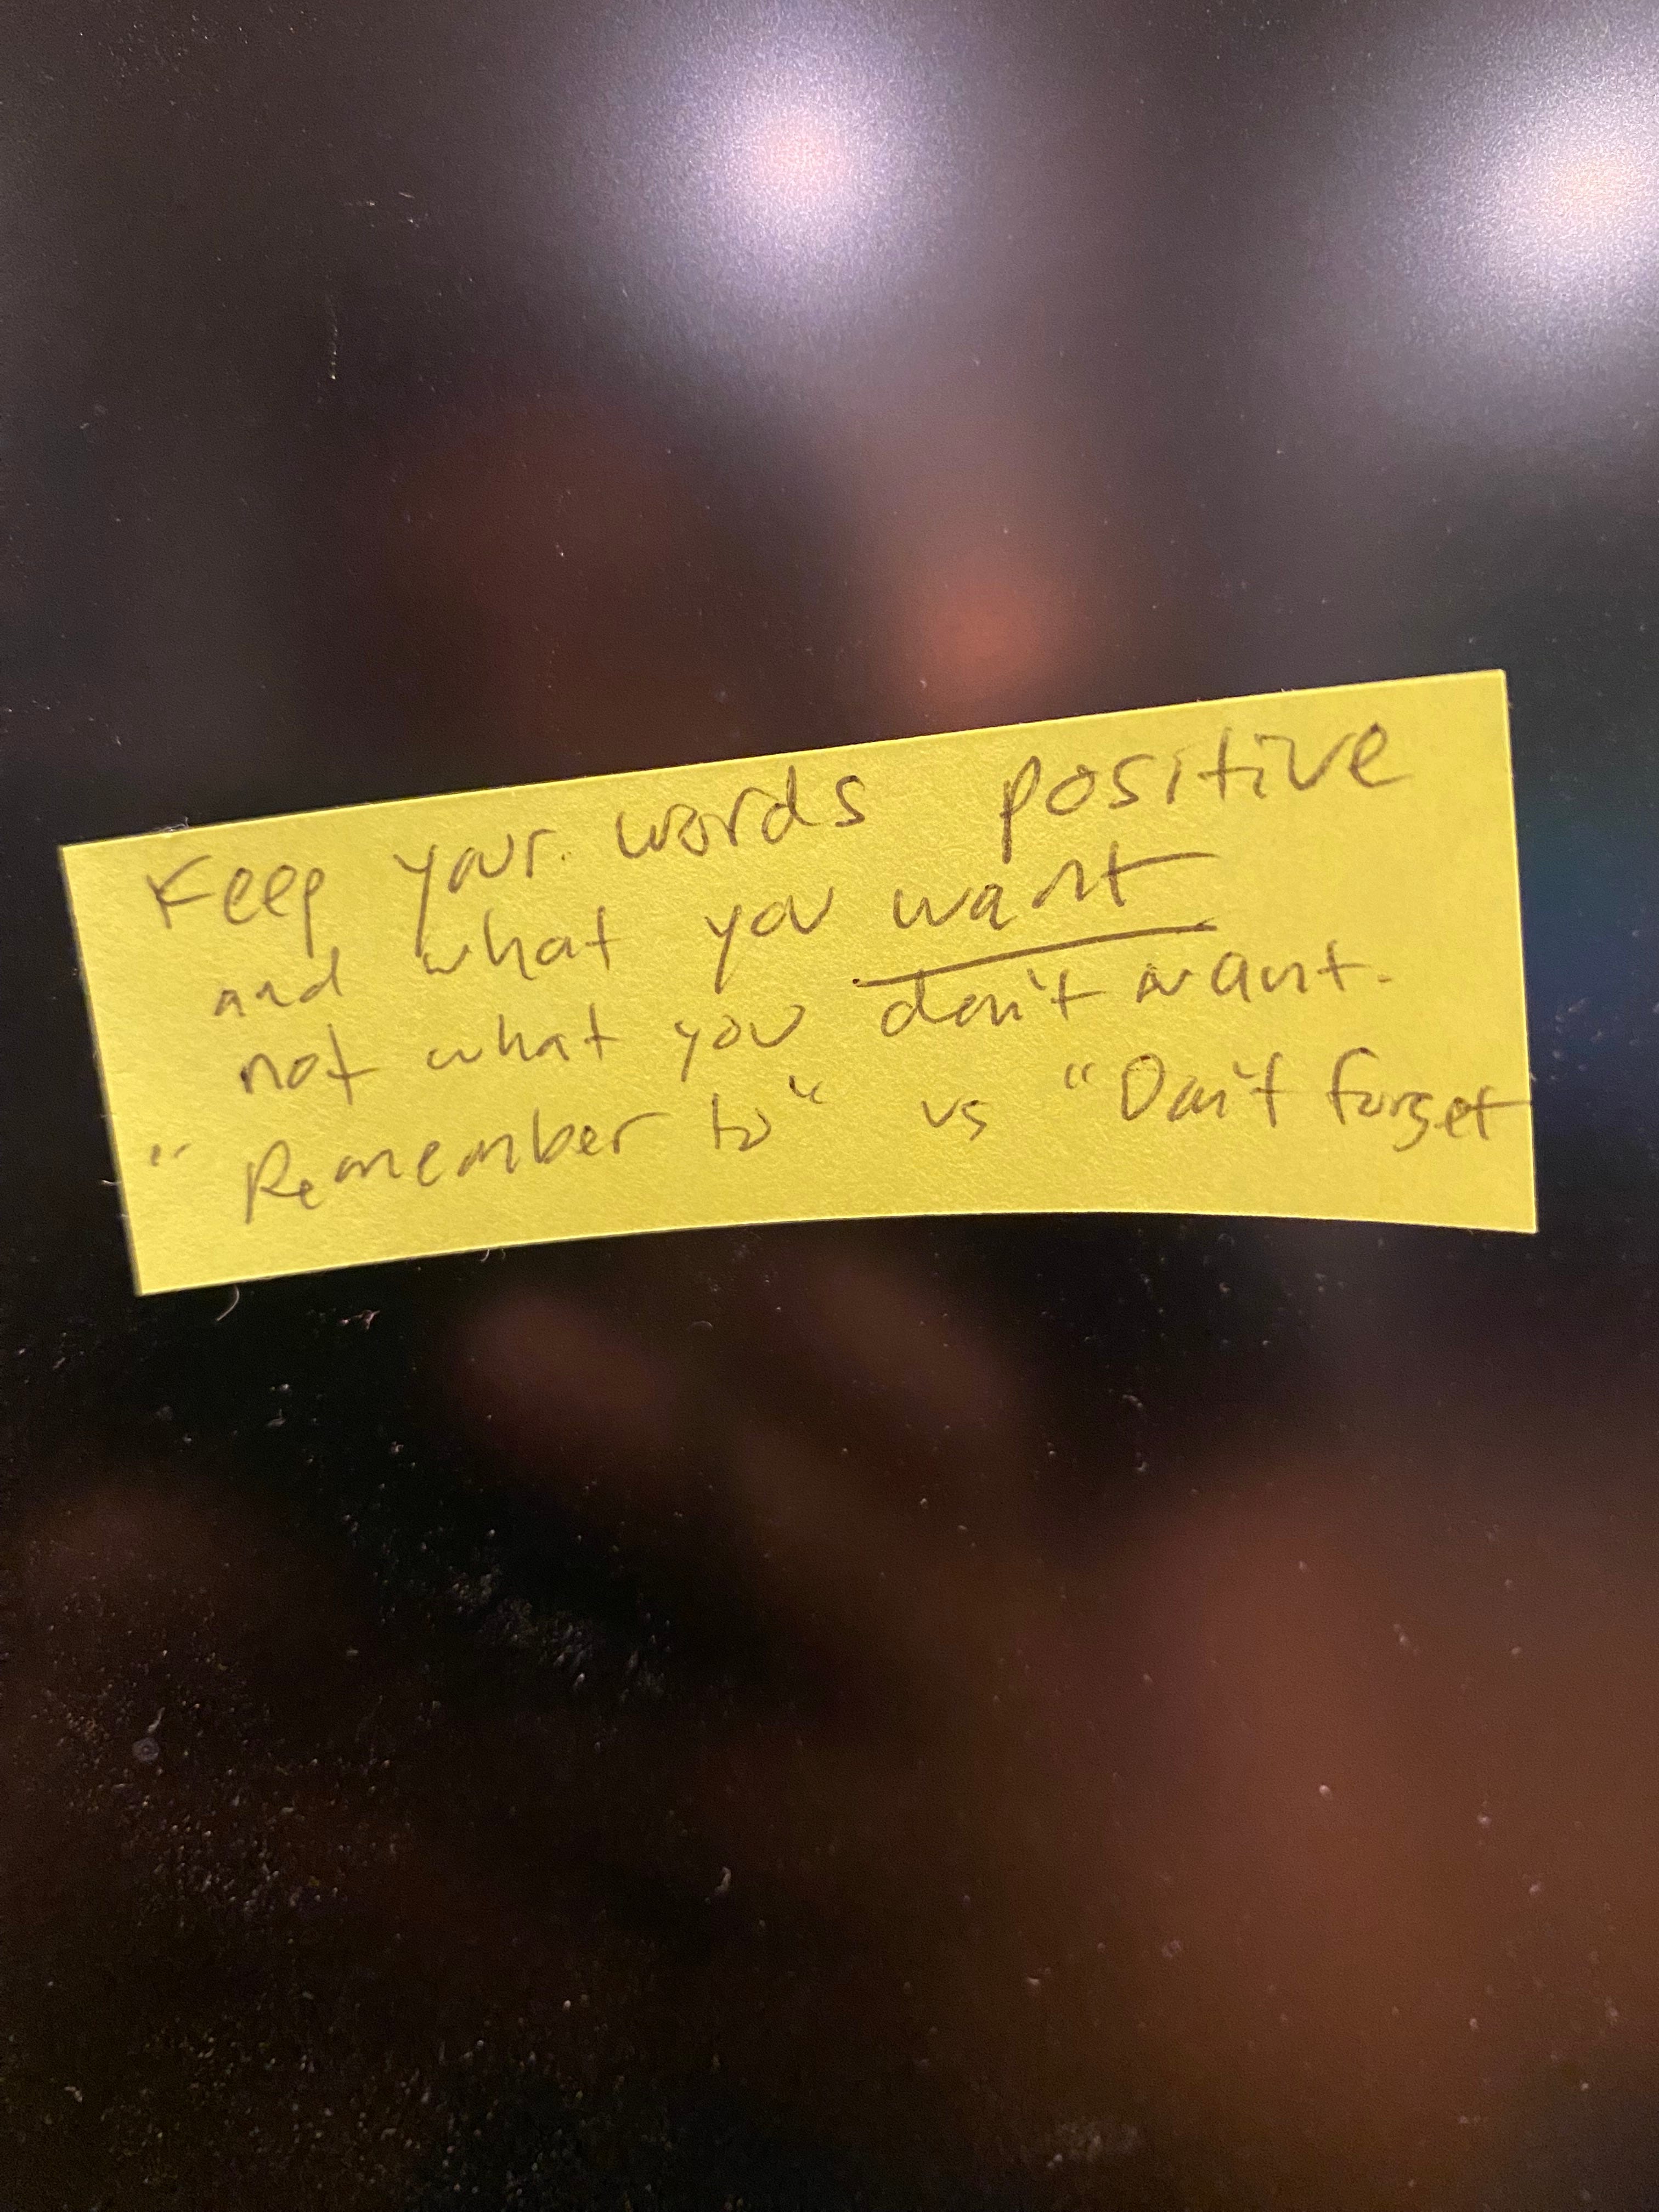 Keep your words positive
and what you want
not what you don't want.
"Remember to" vs "Don't forget